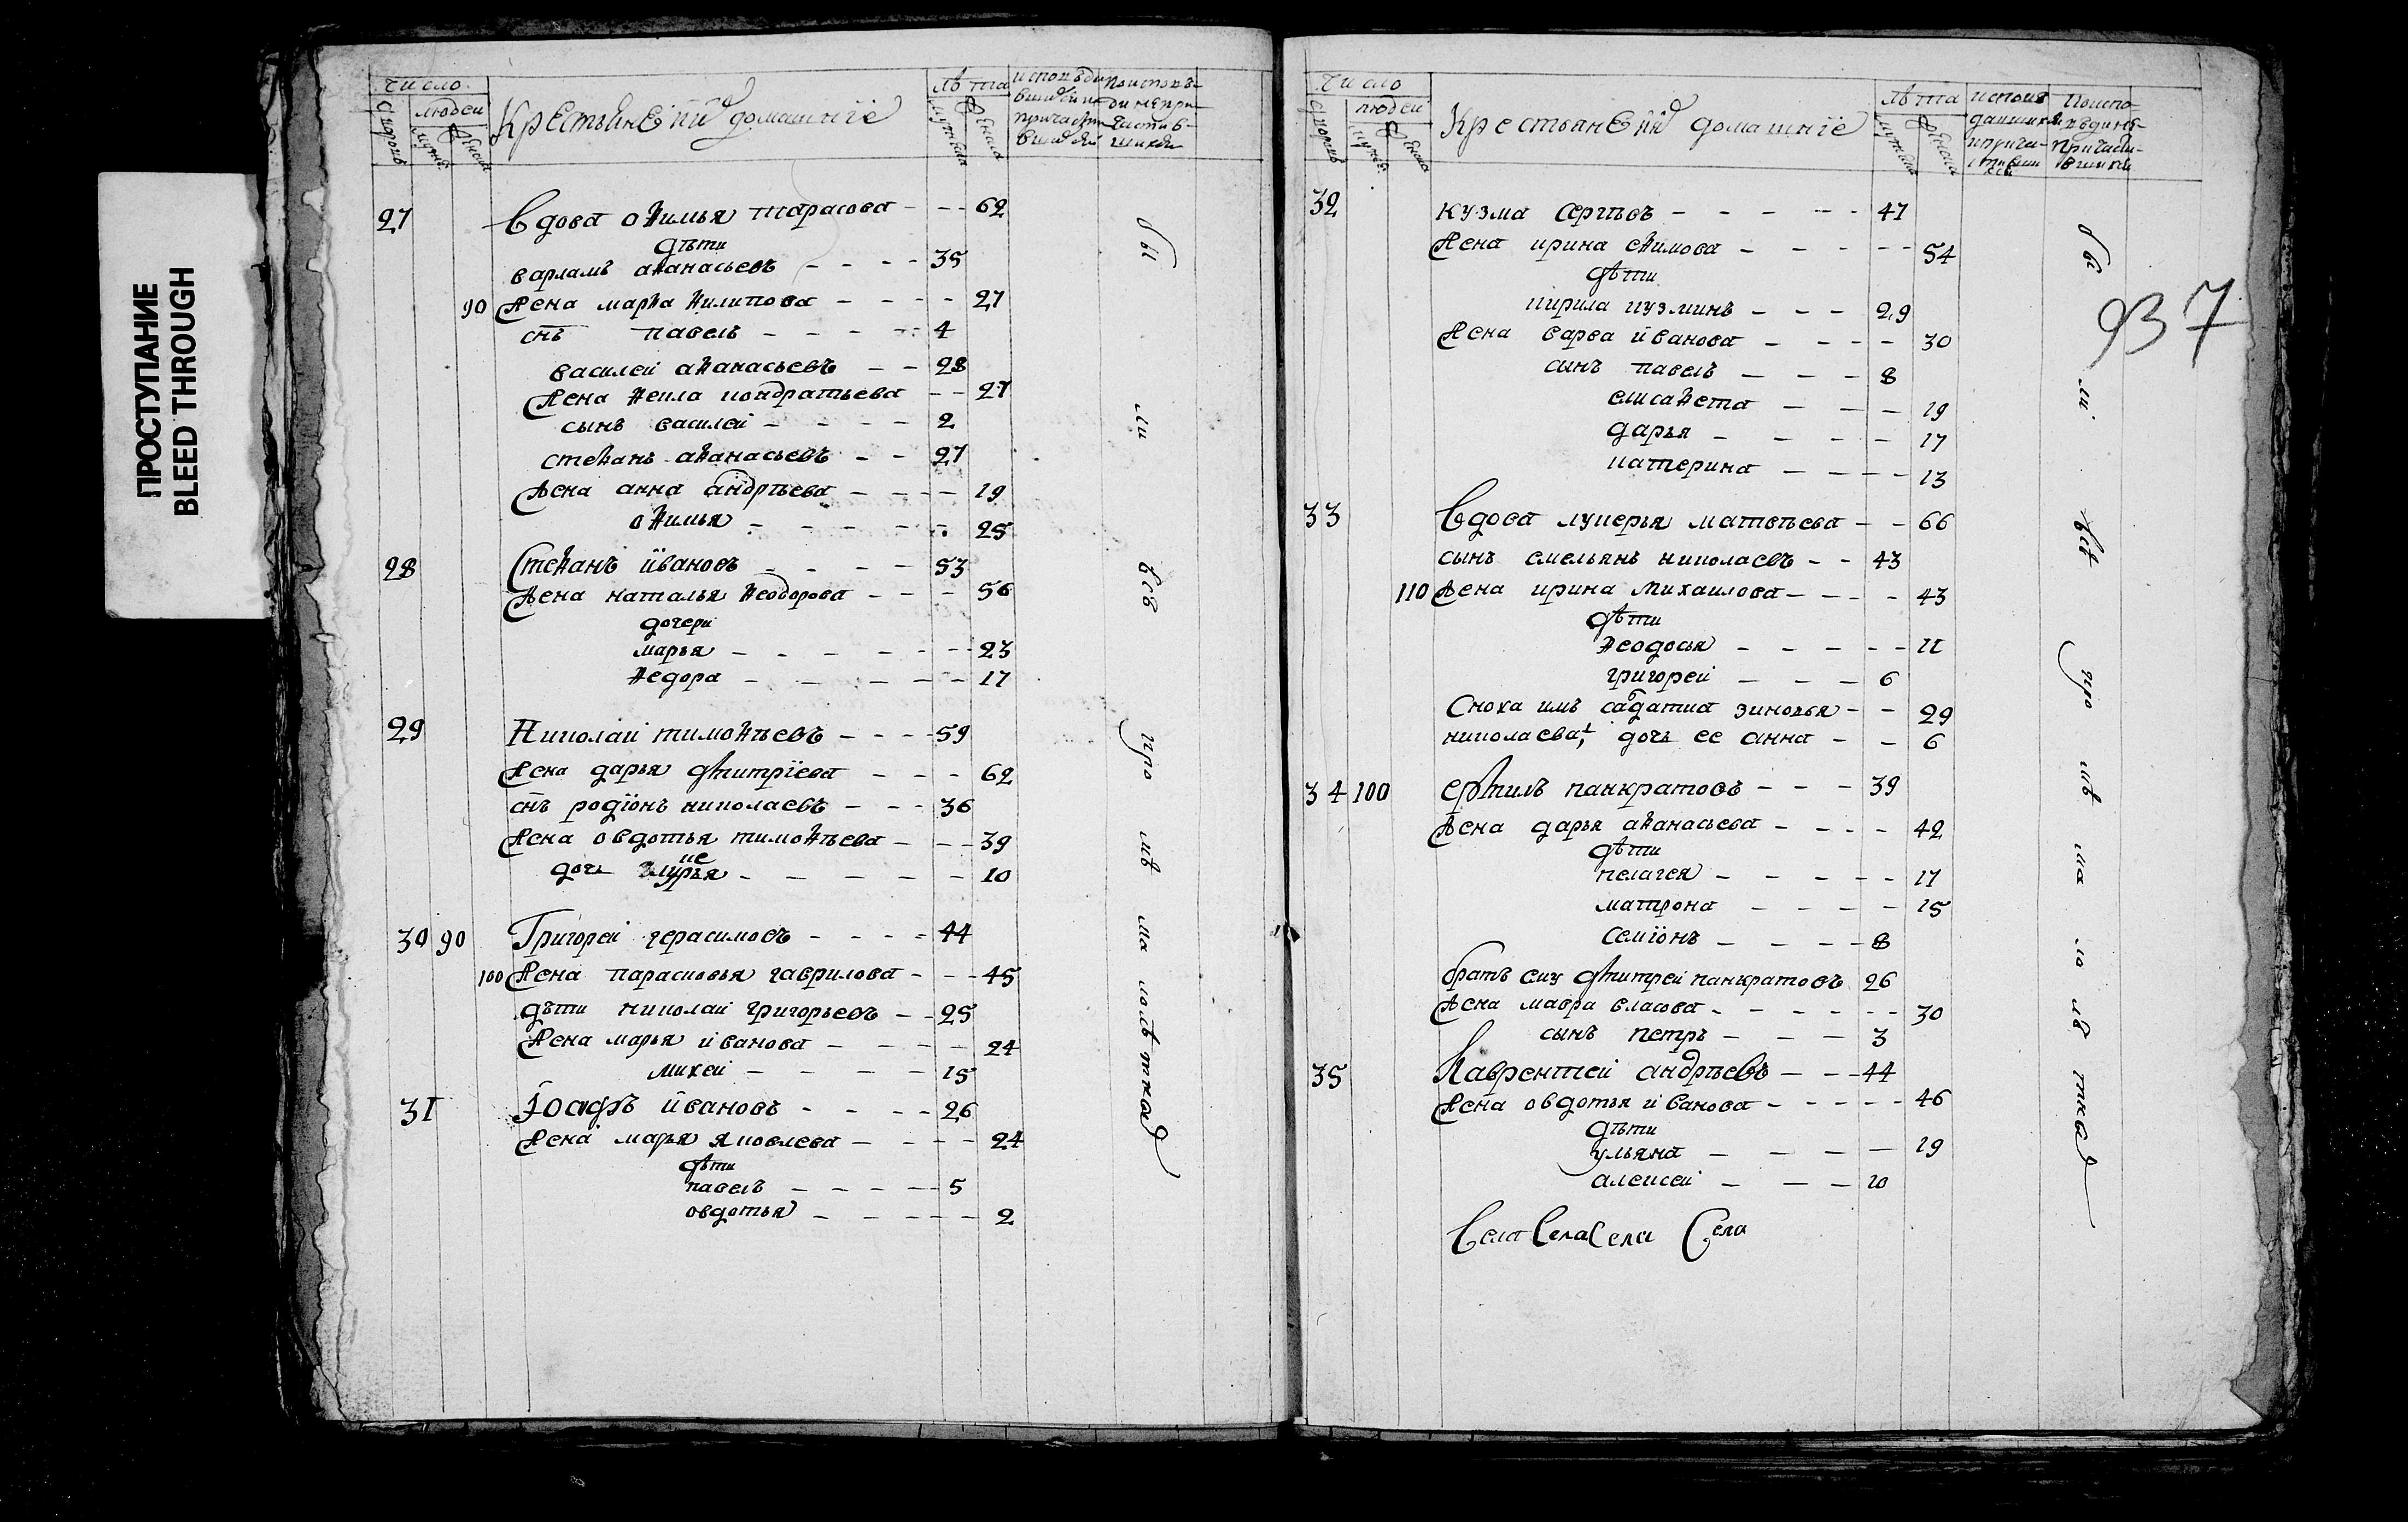 ПРОСТУПАНИЕ
BLEED THROUGH
число
людей
Крестьяне ихъ домашнїе
лѣта
27 вдова офимья тарасова - - - 62
дѣти
варламъ афанасьевъ - - - - 35
90 жена марфа филипова - - - - 27
снъ павелъ - - - - - 4
василей афанасьевъ - - 28
жена фекла кондратьева - - 27
сынъ василей - - - - 2
стефанъ афанасьевъ - - 27
жена анна андрѣева - - - - 19
офимья - - - - - - 25
28 Стефанъ ивановъ - - - - 53
жена наталья феодорова - - - 56
дочери
марья - - - - - - - 23
федора - - - - - - 17
29 Николай тимофѣевъ - - - - 59
жена дарья дмитрїева - - - - 62
снъ родїонъ николаевъ - - - 36
жена овдотья тимофѣева - - - 39
дочь - - - - - - 10
30 90 Григорей герасимовъ - - - - 44
100 жена парасковья гаврилова - - - 45
дѣти николай григорьевъ - - 25
жена марья иванова - - - - - 24
михей - - - - 15
31 ивановъ - - - - 26
жена марья яковлева - - - - 24
дѣти
павелъ - - - - - 5
овдотья - - - - - - 2
бы ли всѣ про шѣ ша лолѣтка
число
людей
Крестьяне ихъ домашнїе
лѣта
937
32 кузма сергѣевъ - - - - - 47
жена ирина ефимова - - - - - 54
дѣти
кирила кузминъ - - - 29
жена варва иванова - - - - 30
сынъ павелъ - - - 8
елисафета - - - 19
дарья - - - - 17
катерина - - - - 13
33 вдова лукерья матвѣева - - 66
сынъ емельянъ николаевъ - - 43
110 жена ирина михаилова - - - - 43
дѣти
феодосья - - - - - 11
григорей - - - 6
сноха имъ салдатка зиновья - - 29
николаева, дочь ее анна - - 6
34 100 ермилъ панкратовъ - - - 39
жена дарья афанасьева - - - - 42
дѣти
пелагея - - - - - 17
матрона - - - - 15
семїонъ - - - - 8
братъ ему дмитрей панкратовъ 26
жена мавра власова - - - - - - 30
сынъ петръ - - - 3
35 Лаврентей андрѣевъ - - - 44
жена овдотья иванова - - - - - 46
дѣти
ульяна - - - - 19
алексей - - - 10
Села Села Села Села